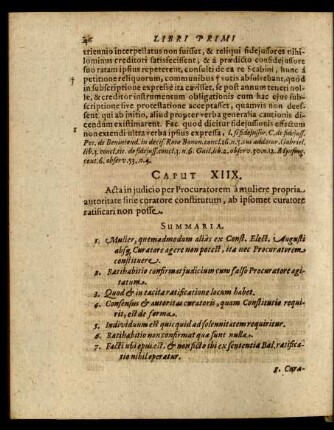 LIBRI PRIMI
triennio interpellatus non fuisset, & reliqui fidejussores nihi-
lominus creditori satisfecissent, & à prædicto confidejussore
suo ratam ipsius repeterent, consulti de ea re Scabini, hunc à
petitione reliquorum, communibus votis absolvebant, quod
in subscriptione expressè ita cavisset, se post annum teneri nol-
le, & creditor instrumentum obligationis cum hac ejus sub-
scriptione sive protestatione acceptasset, quamvis non dees-
sent qui ab initio, aliud propter verba generalia cautionis di-
cendum existimarent. Fac quod dicitur fidejussionis effectum
non extendi ultra verba ipsius expressa, l. si fidejussor. C. de fidejuss.
Pet. de Benintend. in decis. Rotæ Bonon. concl. 26. n. 3. sus addatur. Gabriel.
lib. 3. concl. tit. de fidejuss. concl. 3. n. 6. Gail. lib. 2. observ. 30. n. 12.
cent. 6. observ. 53. n. 4.
CAPUT XIIX.
Acta in judicio per Procuratorem à muliere propria
autoritate sine curatore constitutum, ab ipso met curatore
ratificari non posse.
SUMMARIA.
1. Mulier, quemadmodum aliàs ex Const. Elect. Augusti
absq; Curatore agere non potest, ita nec Procuratorem
constituere.
2. Ratihabitio confirmat judicium cum falso Procuratore agi-
tatum.
3. Quod & in tacita ratificatione locum habet.
4. Consensus & autoritas curatoris, quam Constitutio requi-
rit, est de forma.
5. Individuum est quicquid ad solennitatem requiritur.
6. Ratihabitio non confirmat quæ sunt nulla.
7. Facti ubi epus est. & non ficto ibi ex sententia Bal. ratifica-
tio nihil operatur.
8. Cura-